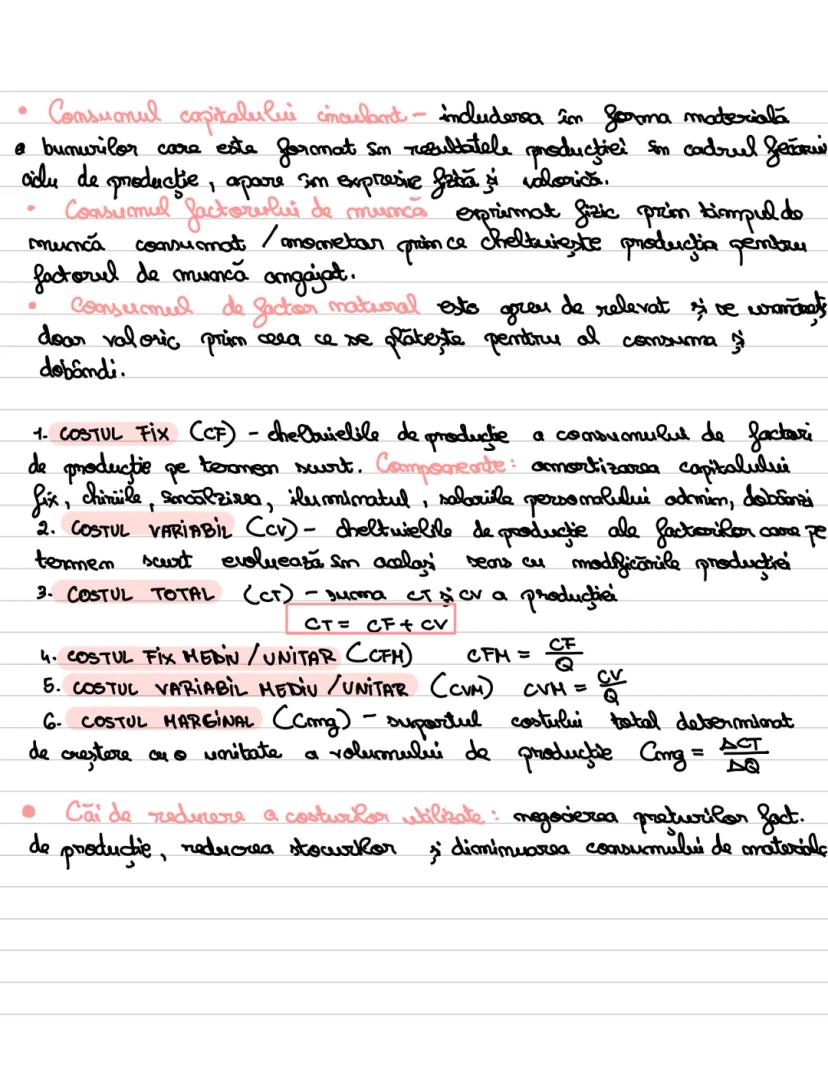 • Consumul capitalului circulant - includerea în forma materială
a bunurilor care este format în rezultatele producției în cadrul fiecărui
ciclu de producție, apare în expresie fizică și valorică.
• Consumul factorului de muncă exprimat fizic prin timpul de
muncă consumat / monetar prin ce cheltuiește producția pentru
factorul de muncă angajat.
• Consumul de factor natural este greu de relevat și se urmărește
doar valoric prin ceea ce se plătește pentru al consuma și
dobândi.
1. COSTUL FIX (CF) - cheltuielile de producție a consumului de factori
de producție pe termen scurt. Componente: amortizarea capitalului
fix, chiriile, încălzirea, iluminatul, salariile personalului admin, dobânzi
2. COSTUL VARIABIL (CV) - cheltuielile de producție ale factorilor care pe
termen scurt evoluează în același sens cu modificările producției
3. COSTUL TOTAL (CT) - suma CT și CV a producției
CT = CF + CV
4. COSTUL FIX MEDIU / UNITAR (CFM) CFM = CF/Q
5. COSTUL VARIABIL MEDIU / UNITAR (CVM) CVM = CV/Q
6. COSTUL MARGINAL (Cmg) - suportul costului total determinat
de creștere cu o unitate a volumului de producție Cmg = ΔCT/ΔQ
• Căi de reducere a costurilor utilizate: negocierea prețurilor fact.
de producție, reducerea stocurilor și diminuarea consumului de materiale